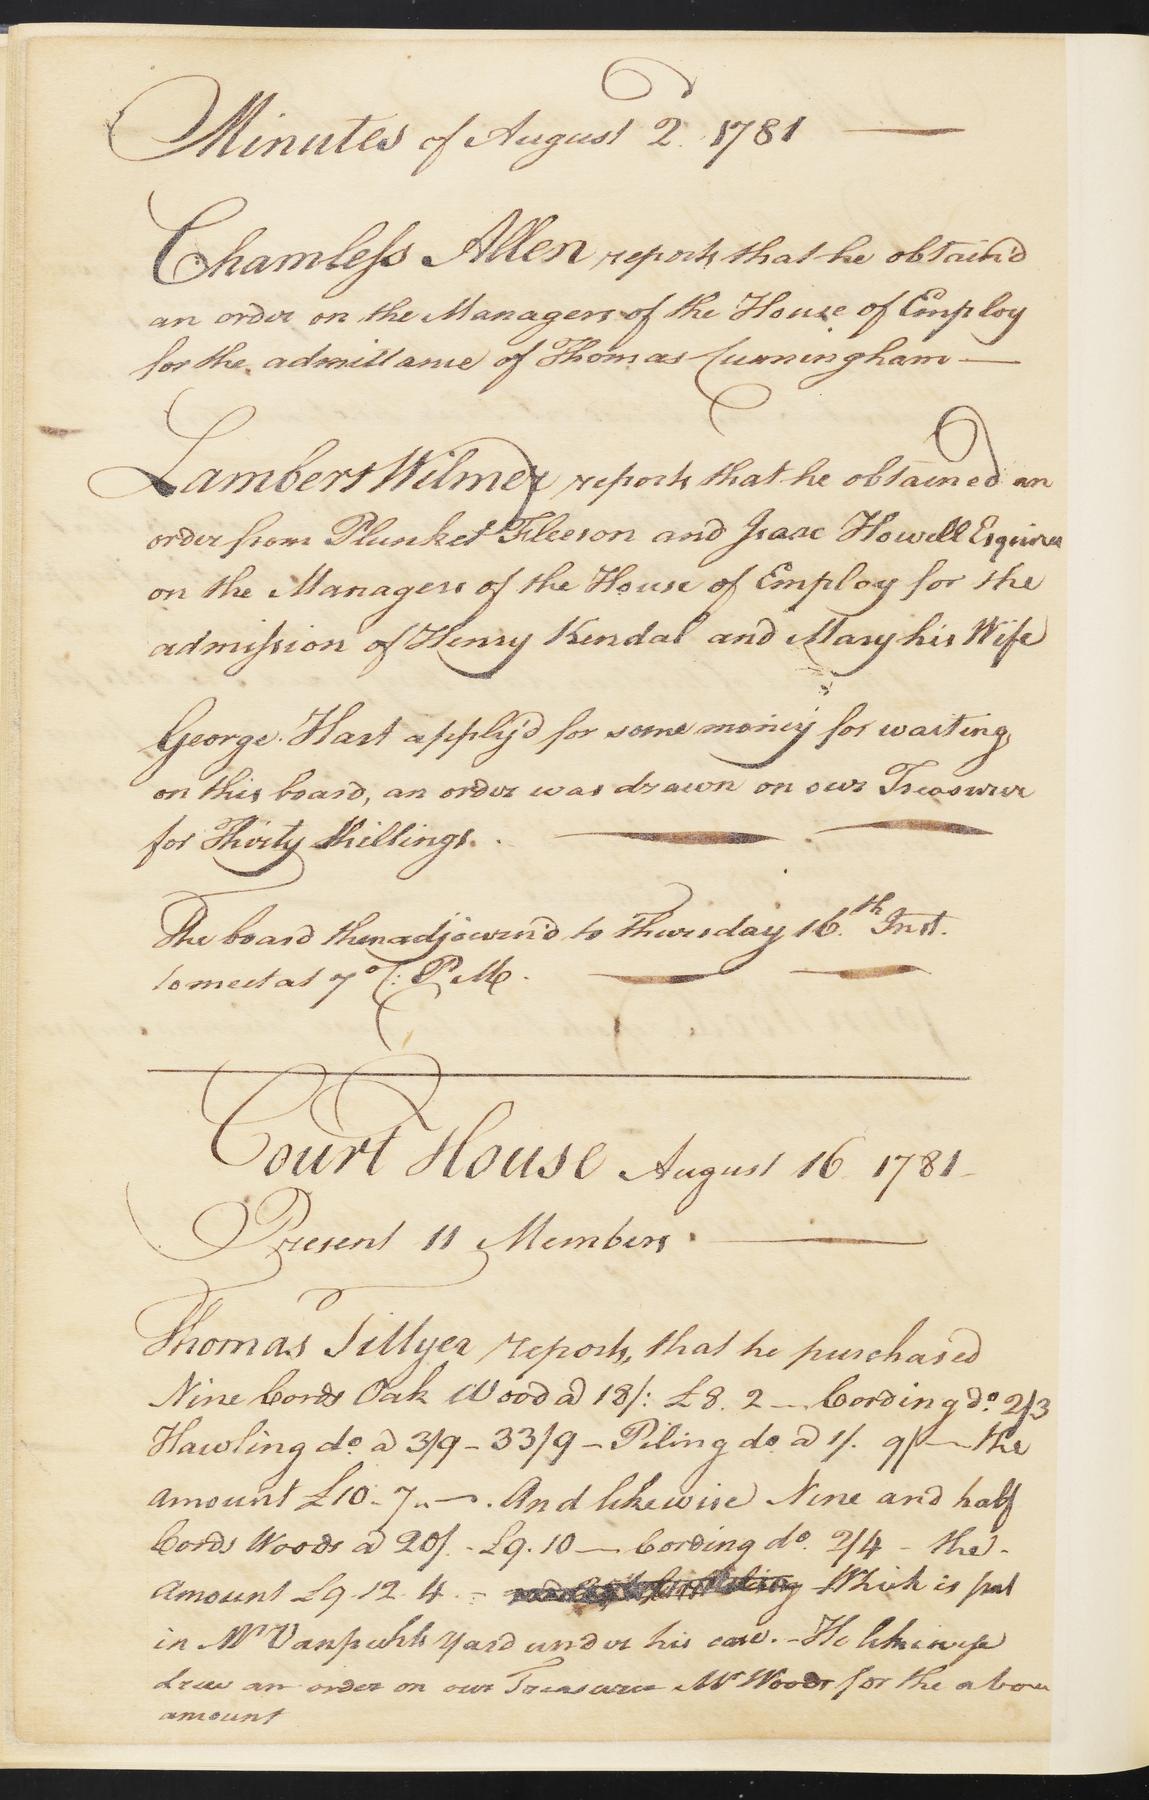 Minutes of August 2. 1781
Chamless Allen reports that he obtain'd
an order on the Managers of the House of Employ
for the admittance of Thomas Cunningham
Lambert Wilmer reports that he obtained an
order from Plunket Fleeson and Isaac Howell Esquires
on the Managers of the House of Employ for the
admission of Henry Kendal and Mary his Wife
George Hart apply'd for some money for waiting
on this board, an order was drawn on our Treasurer
for Thirty Shillings.
The board then adjourn'd to Thursday 16.th Inst.
to meet at 7 o/C: P.M.
Court House August 16 1781
Present 11 Members
Thomas Tillyer reports, that he purchased
Nine Cords Oak Wood a 18/: £8. 2 — Cording do. 2/3
Hawling do. a 3/9 - 33/9 - Piling do. a 1/. 9/ — the
amount £10. 7.. —. And likewise Nine and half
Cords Woods a 20/. - £9. 10 — Cording do. 2/4 - the
Amount £9. 12. 4. - Which is put
in Mr. yard under his care. - He likewise
drew an order on our Treasurer Mr Woods for the above
amount